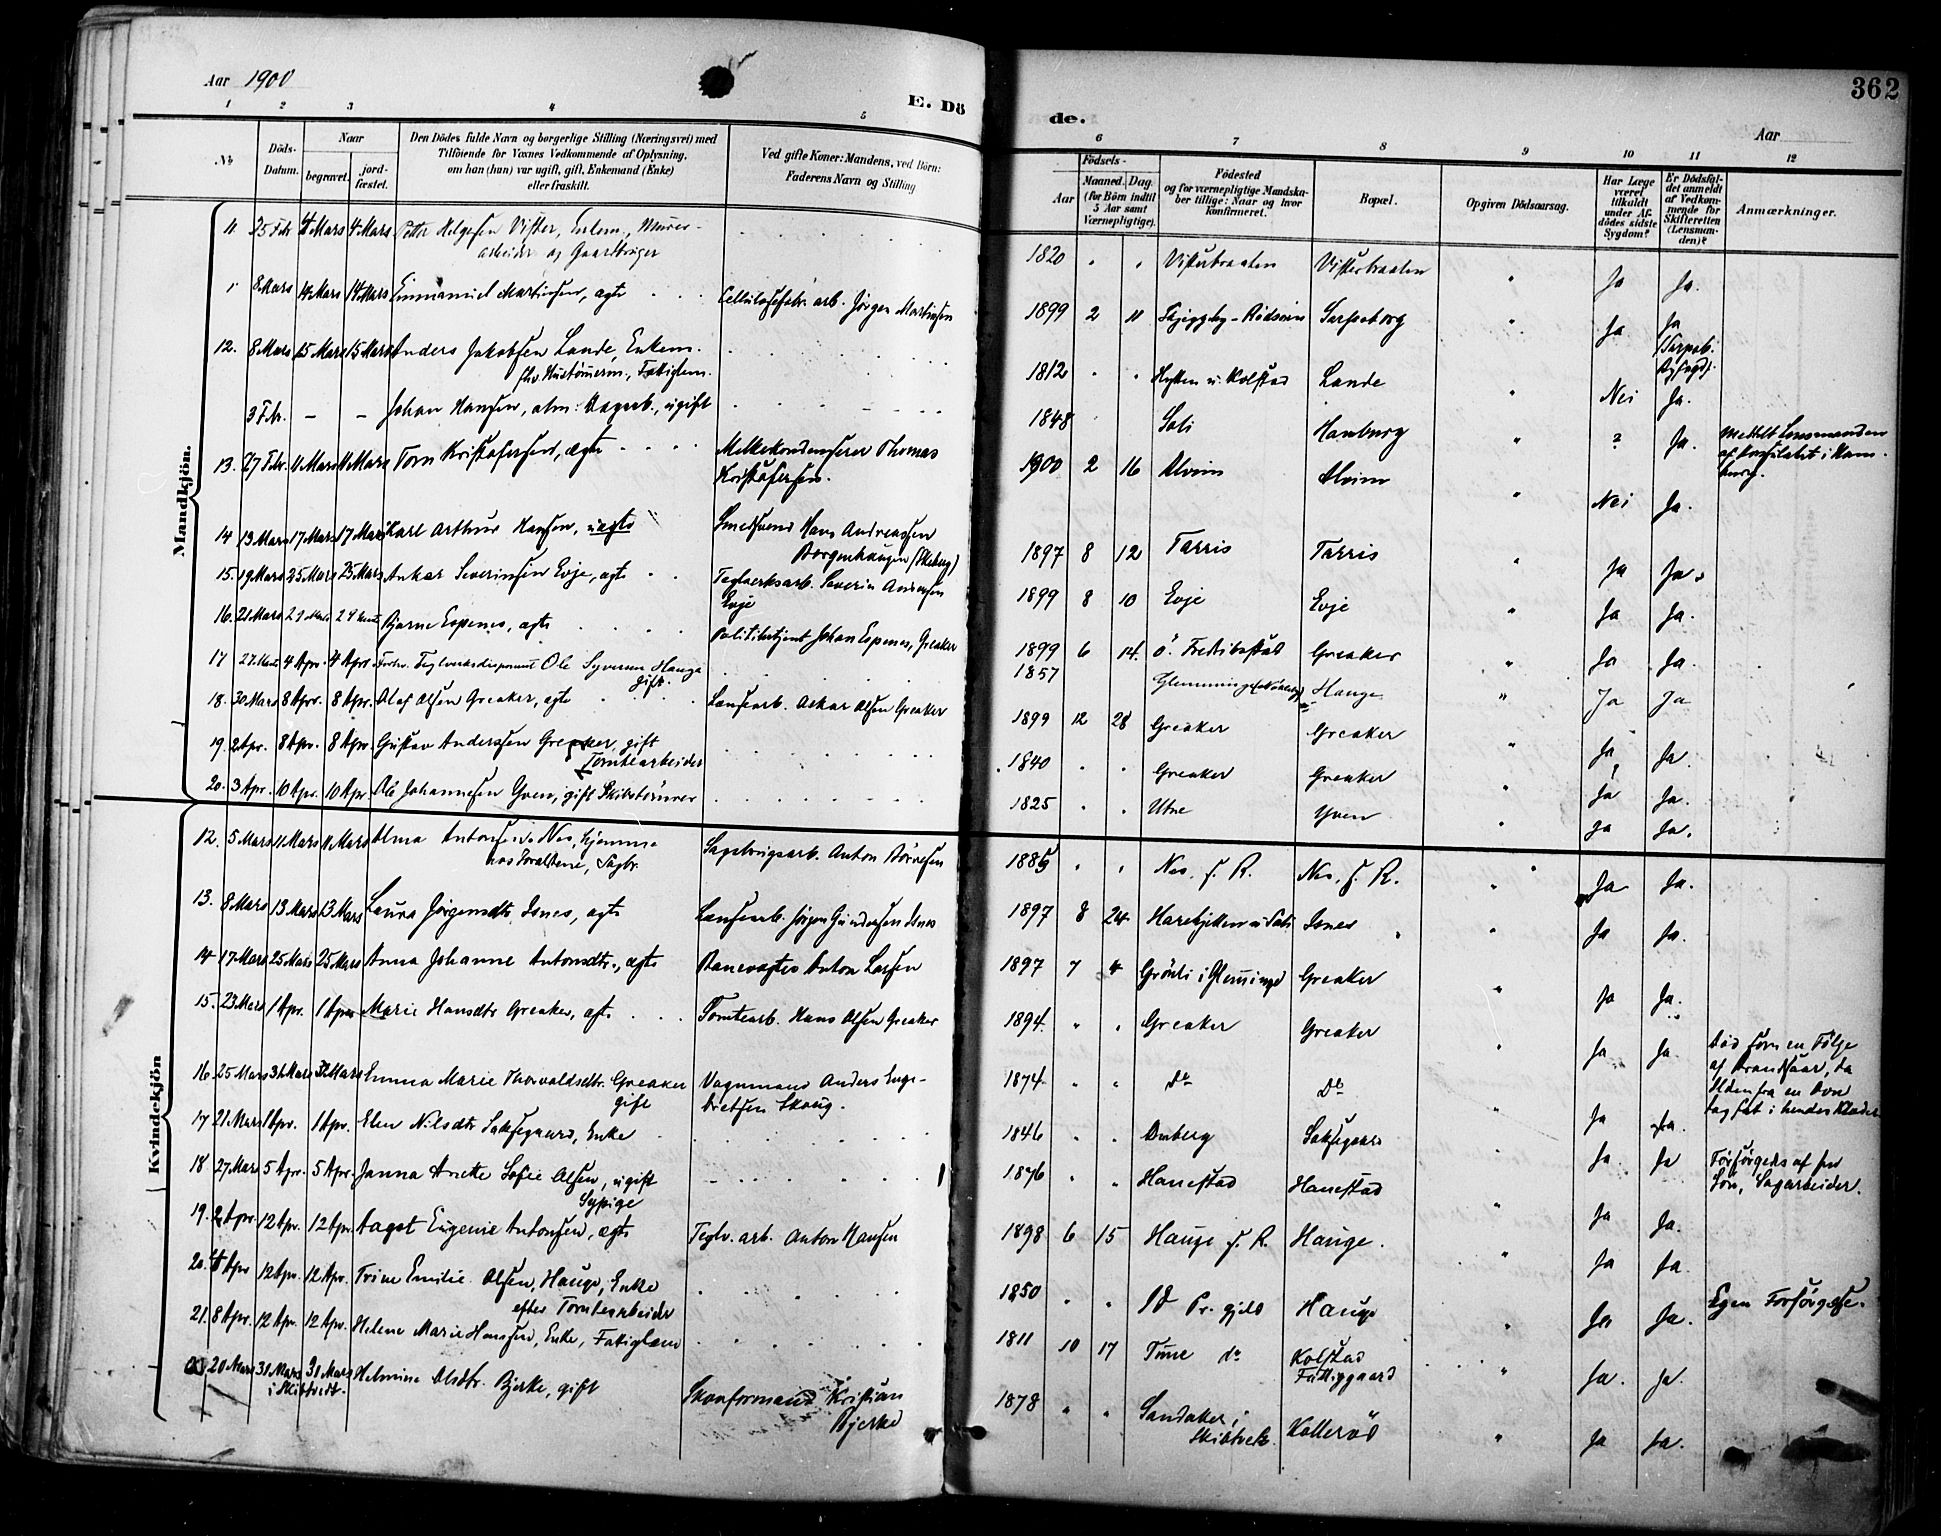 Aar 1900
E. Dö
de.
362
Aar
1 2 3 4 5 6 7 8 9 10 11 12
No
Döds-
Datum.
Naar
begravet.
jord-
fæstet.
Den Dödes fulde Navn og borgerlige Stilling (Næringsvei) med
Tilföiende for Voxnes Vedkommende af Oplysning,
om han (hun) var ugift, gift, Enkemand (Enke)
eller fraskilt.
Ved gifte Koner: Mandens, ved Börn:
Faderens Navn og Stilling
Födsels-
Aar
Maaned. Dag.
(for Börn indtil
5 Aar samt
Værnepligtige).
Födested
og for værnepligtige Mandska-
ber tillige: Naar og hvor
konfirmeret.
Bopæl.
Opgiven Dödsaarsag.
Har Læge
været
tilkaldt
under Af-
dödes sidste
Sygdom?
Er Dödsfal-
det anmeldt
af Vedkom-
mende for
Skifteretten
(Lensman-
den)?
Anmærkninger.
Mandkjön.
11 25 Febr 4 Mars 4 Mars Petter Helgesen Vister, Enkem., Murer-
arbeider og Gaardbruger
1820 " " Visterbraaten Visterbraaten " Ja Ja.
8 Mars 14 Mars 14 Mars Emmanuel Martinsen, ægte Cellulosefabr. arb. Jörgen Martinsen
1899 2 11 Sarpsborg " Ja Ja
12. 8 Mars 15 Mars 15 Mars Anders Jakobsen Lande, Enkem.
fhv. Hustømerm., Fattiglem.
1812 " " Hytten u. Kolstad Lande " Nei Ja.
3 Febr. – – Johan Hansen, alm: Dagarb., ugift
1848 Soli Hamburg " ? Ja. Meldt Lensmanden
af Konsulatet i Ham-
burg.
13. 27 Febr. 11 Mars 11 Mars Tom Kristofersen, ægte Melkekondenserer Thomas
Kristofersen.
1900 2 16 Alvim Alvim " Nei Ja.
14 13 Mars 17 Mars 17 Mars Karl Arthur Hansen, uægte Smedsvend Hans Andreassen
Borgenhaugen (Skeberg)
1897 8 12 Tarris Tarris " Ja Ja.
15. 19 Mars 25 Mars 25 Mars Ankar Severinsen Evje, ægte Teglverksarb. Severin Andersen
Evje
1899 8 10 Evje Evje " Ja Ja.
16. 21 Mars Bjarne Espenes, ægte Politibetjent Johan Espenes, Greaker
1899 6 14. ö. Fredrikstad Greaker " Ja Ja.
17 4 Apr. 4 Apr. Forhv. Teglverksdisponent Ole Syversen Hauge
gift.
1857 Hauge " Ja Ja
18. 30 Mars 8 Apr. 8 Apr. Olaf Olsen Greaker, ægte Lænsearb. Oskar Olsen Greaker
1899 12 28 Greaker Greaker " Ja Ja.
19. 2 Apr. 8 Apr. 8 Apr. Gustav Anderssen Greaker, gift
Tomtearbeider
1840 " " Greaker Greaker " Ja Ja.
20. 3 Apr. 10 Apr. 10 Apr. Ole Johannesen Yven, gift Skibstømrer
1825 " " Utne Yven Ja Ja.
Kvindekjön
12. 5 Mars 11 Mars 11 Mars Alma Antonsen Nes, hjemme
hos Forældrene, Sagbr. Sagbrugsarb. Anton Børresen
1885 " " Nes, s. R. Nes, s. R. " Ja Ja.
13. 8 Mars 13 Mars 13 Mars Laura Jörgensdtr. Isnes, ægte Lænsearb. Jörgen Gundersen Isnes
1897 8 24 Isnes " Ja Ja.
14 17 Mars 25 Mars 25 Mars Anna Johanne Antonsdtr., ægte Banevogter Anton Larsen
1897 7 4 Grönli i Glemminge Greaker " Ja Ja.
15. 23 Mars 1 Apr. 1 Apr. Marie Hansdtr Greaker, ægte Tomtearb. Hans Olsen Greaker
1894. " " Greaker Greaker " Ja Ja.
16 25 Mars 31 Mars Emma Marie Thorvaldsdtr. Greaker
gift Vognmand Anders Enge-
bretsen Skoug.
1874 " " Do Do " Ja Ja. Död som en Følge
af Brandsaar, da
Ilden fra en Ovn
tog fat i hendes Klæder
17 21 Mars 1 Apr. 1 Apr. Elen Nilsdtr Saksegaard, Enke
1846 " " Omberg Saksegaard Ja Ja Forsörgedes af sin
Sön, Sagarbeider.
18 27 Mars 5 Apr. 5 Apr. Janna Anette Sofie Olsen, ugift
Sypige
1876 " " Hanestad Hanestad " Ja Ja.
19. 2 Apr. 12 Apr. 12 Apr. Aagot Eugenie Antonsen, ægte Teglv. arb. Anton Hansen
1898 6 15 Hauge s. R. Hauge. " Ja Ja.
20. 4 Apr 12 Apr. 12 Apr. Trine Emilie Olsen, Hauge, Enke
efter Tomtearbeider
1850 " " Hauge " Ja Ja. Egen Forsörgelse.
21. 8 Apr. 12 Apr. 12 Apr. Helene Marie Hanssen, Enke, Fattiglem
1811 10 17 Tune do Kolstad
Fattiggaard " Ja. Ja.
20 Mars 31 Mars 31 Mars Helmine Olsdtr. Bjerke, gift
i Skibtvedt. Skouformand Kristian
Bjerke
1878 " " Sandaker i
Skibtvet. Kallerød " Ja Ja.